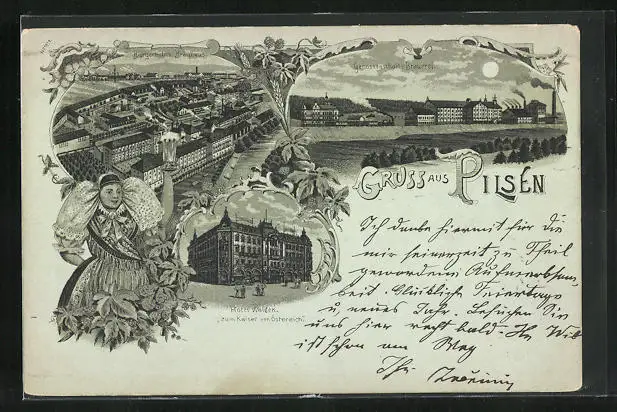 Bürgerliches Bräuhaus.
Genossenschafts-Brauerei.
GRUSS AUS PILSEN
Hotel Waldek
"zum Kaiser von Österreich".
Ich danke hiermit für die
mir seinerzeit zu Theil
gewordene Aufmerksam-
keit. Glückliche Feiertage
u. neues Jahr. Besuchen Sie
uns hier recht bald.
ist schon am Weg
Ihr